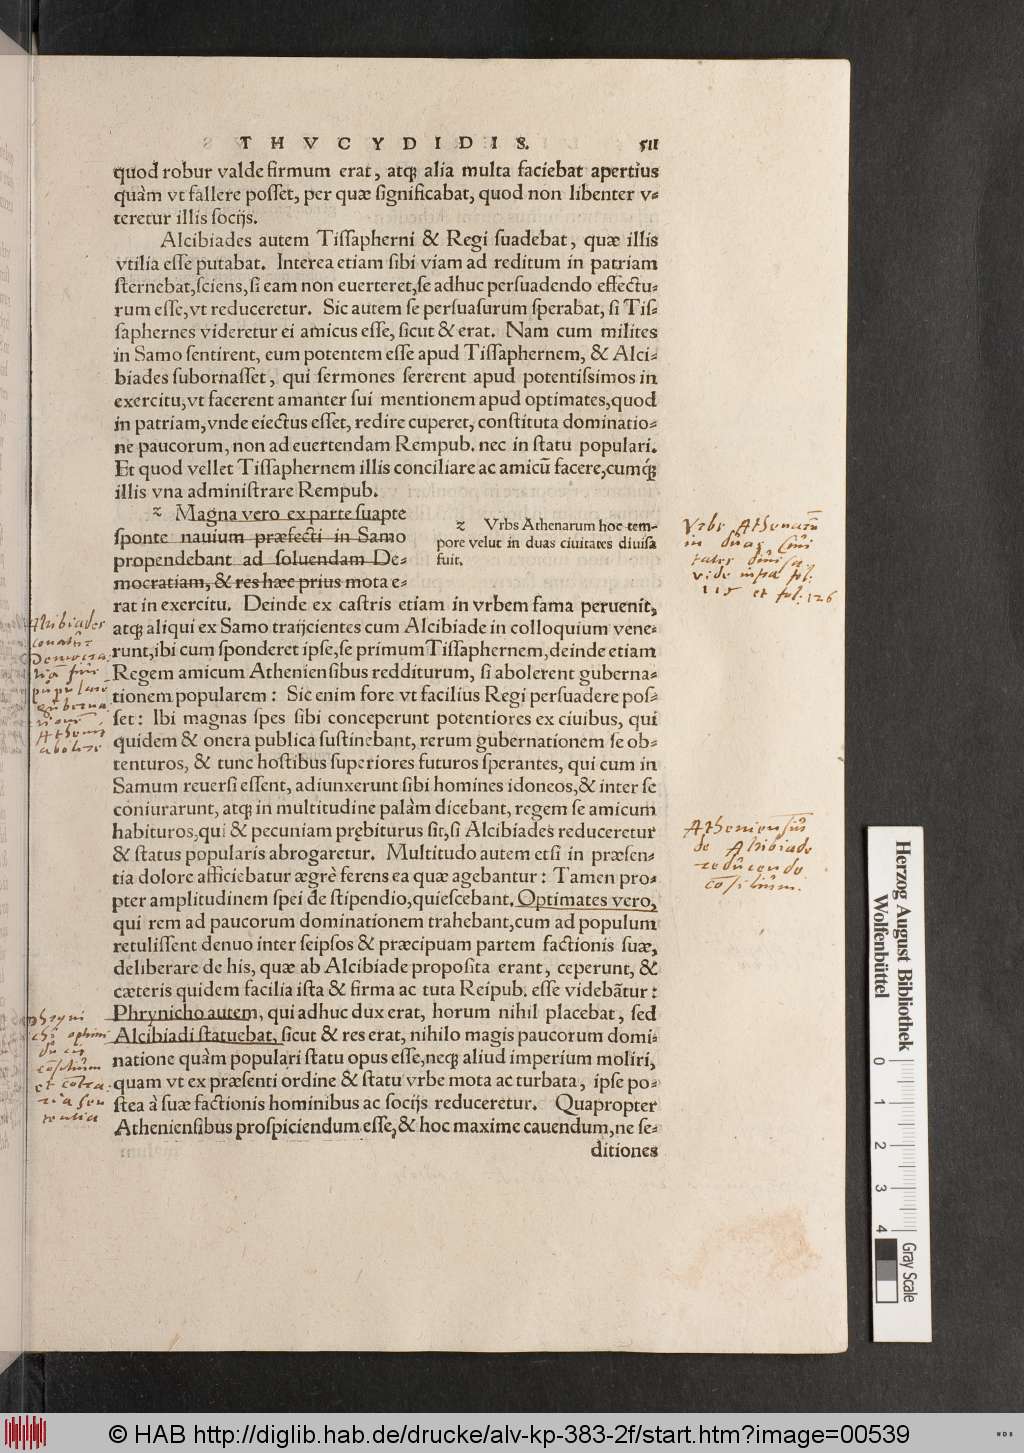 THVCYDIDIS. 511
quod robur valde firmum erat, atq; alia multa faciebat apertius
quàm vt fallere posset, per quæ significabat, quod non libenter v=
teretur illis socijs.
Alcibiades autem Tissapherni & Regi suadebat, quæ illis
vtilia esse putabat. Interea etiam sibi viam ad reditum in patriam
sternebat, sciens, si eam non euerteret, se adhuc persuadendo effectu=
rum esse, vt reduceretur. Sic autem se persuasurum sperabat, si Tis=
saphernes videretur ei amicus esse, sicut & erat. Nam cum milites
in Samo sentirent, eum potentem esse apud Tissaphernem, & Alci=
biades subornasset, qui sermones sererent apud potentissimos in
exercitu, vt facerent amanter sui mentionem apud optimates, quod
in patriam, vnde eiectus esset, redire cuperet, constituta dominatio=
ne paucorum, non ad euertendam Rempub. nec in statu populari.
Et quod vellet Tissaphernem illis conciliare ac amicũ facere, cumq́;
illis vna administrare Rempub.
z Magna vero ex parte suapte
sponte nauium præfecti in Samo
propendebant ad soluendam De=
mocratiam, & res hæc prius mota e=
z Vrbs Athenarum hoc tem=
pore velut in duas ciuitates diuisa
fuit.
Vrbs Athenarũ
in duas Ciui
tates diuisa.
vide infra fol.
115 et fol. 126
rat in exercitu. Deinde ex castris etiam in vrbem fama peruenit,
atq; aliqui ex Samo traijcientes cum Alcibiade in colloquium vene=
runt, ibi cum sponderet ipse, se primum Tissaphernem, deinde etiam
Regem amicum Atheniensibus redditurum, si abolerent guberna=
tionem popularem: Sic enim fore vt facilius Regi persuadere pos=
set: Ibi magnas spes sibi conceperunt potentiores ex ciuibus, qui
quidem & onera publica sustinebant, rerum gubernationem se ob=
tenturos, & tunc hostibus superiores futuros sperantes, qui cum in
Samum reuersi essent, adiunxerunt sibi homines idoneos, & inter se
coniurarunt, atq; in multitudine palàm dicebant, regem se amicum
habituros, qui & pecuniam prębiturus sit, si Alcibiades reduceretur
& status popularis abrogaretur. Multitudo autem etsi in præsen=
tia dolore afficiebatur ægrè ferens ea quæ agebantur: Tamen pro=
pter amplitudinem spei de stipendio, quiescebant. Optimates vero,
qui rem ad paucorum dominationem trahebant, cum ad populum
retulissent denuo inter seipsos & præcipuam partem factionis suæ,
deliberare de his, quæ ab Alcibiade proposita erant, ceperunt, &
cæteris quidem facilia ista & firma ac tuta Reipub. esse videbãtur:
Phrynicho autem, qui adhuc dux erat, horum nihil placebat, sed
Alcibiadi statuebat, sicut & res erat, nihilo magis paucorum domi=
natione quàm populari statu opus esse, neq; aliud imperium moliri,
quam vt ex præsenti ordine & statu vrbe mota ac turbata, ipse po=
stea à suæ factionis hominibus ac socijs reduceretur. Quapropter
Atheniensibus prospiciendum esse, & hoc maxime cauendum, ne se=
ditiones
Alcibiades
conatur
Democra,
popularē
guberna
tionem
Athenis
abolere
Atheniensiũ
de Alcibiade
reducendo
cõsilium.
Phryni
chi optimi
ducis
cõsilium
et cõtra=
ria sen
tentia
Herzog August Bibliothek
Wolfenbüttel
0 1 2 3 4
Gray Scale
© HAB http://diglib.hab.de/drucke/alv-kp-383-2f/start.htm?image=00539